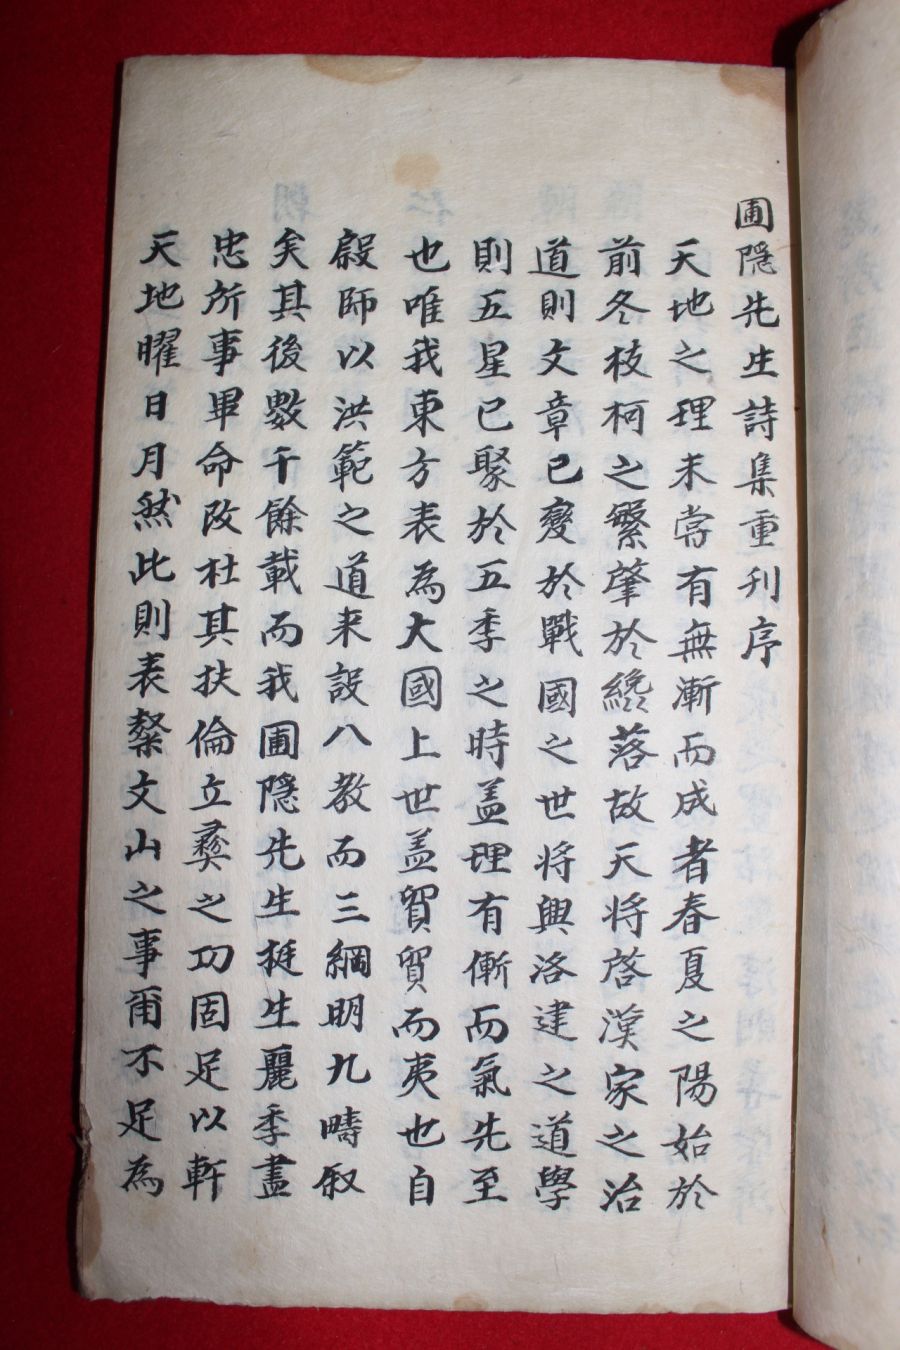 圃隱先生詩集重刋序
天地之理未甞有無漸而成者春夏之陽始於
前冬枝柯之繁肇於纔落故天將啓漢家之治
道則文章已變於戰國之世將興洛建之道學
則五星已聚於五季之時盖理有漸而氣先至
也唯我東方表為大國上世盖貿貿而夷也自
殷師以洪範之道来設八教而三綱明九疇叙
矣其後數千餘載而我圃隱先生挺生麗季盡
忠所事畢命改杜其扶倫立彛之功固足以軒
天地曜日月然此則表粲文山之事甭不足為